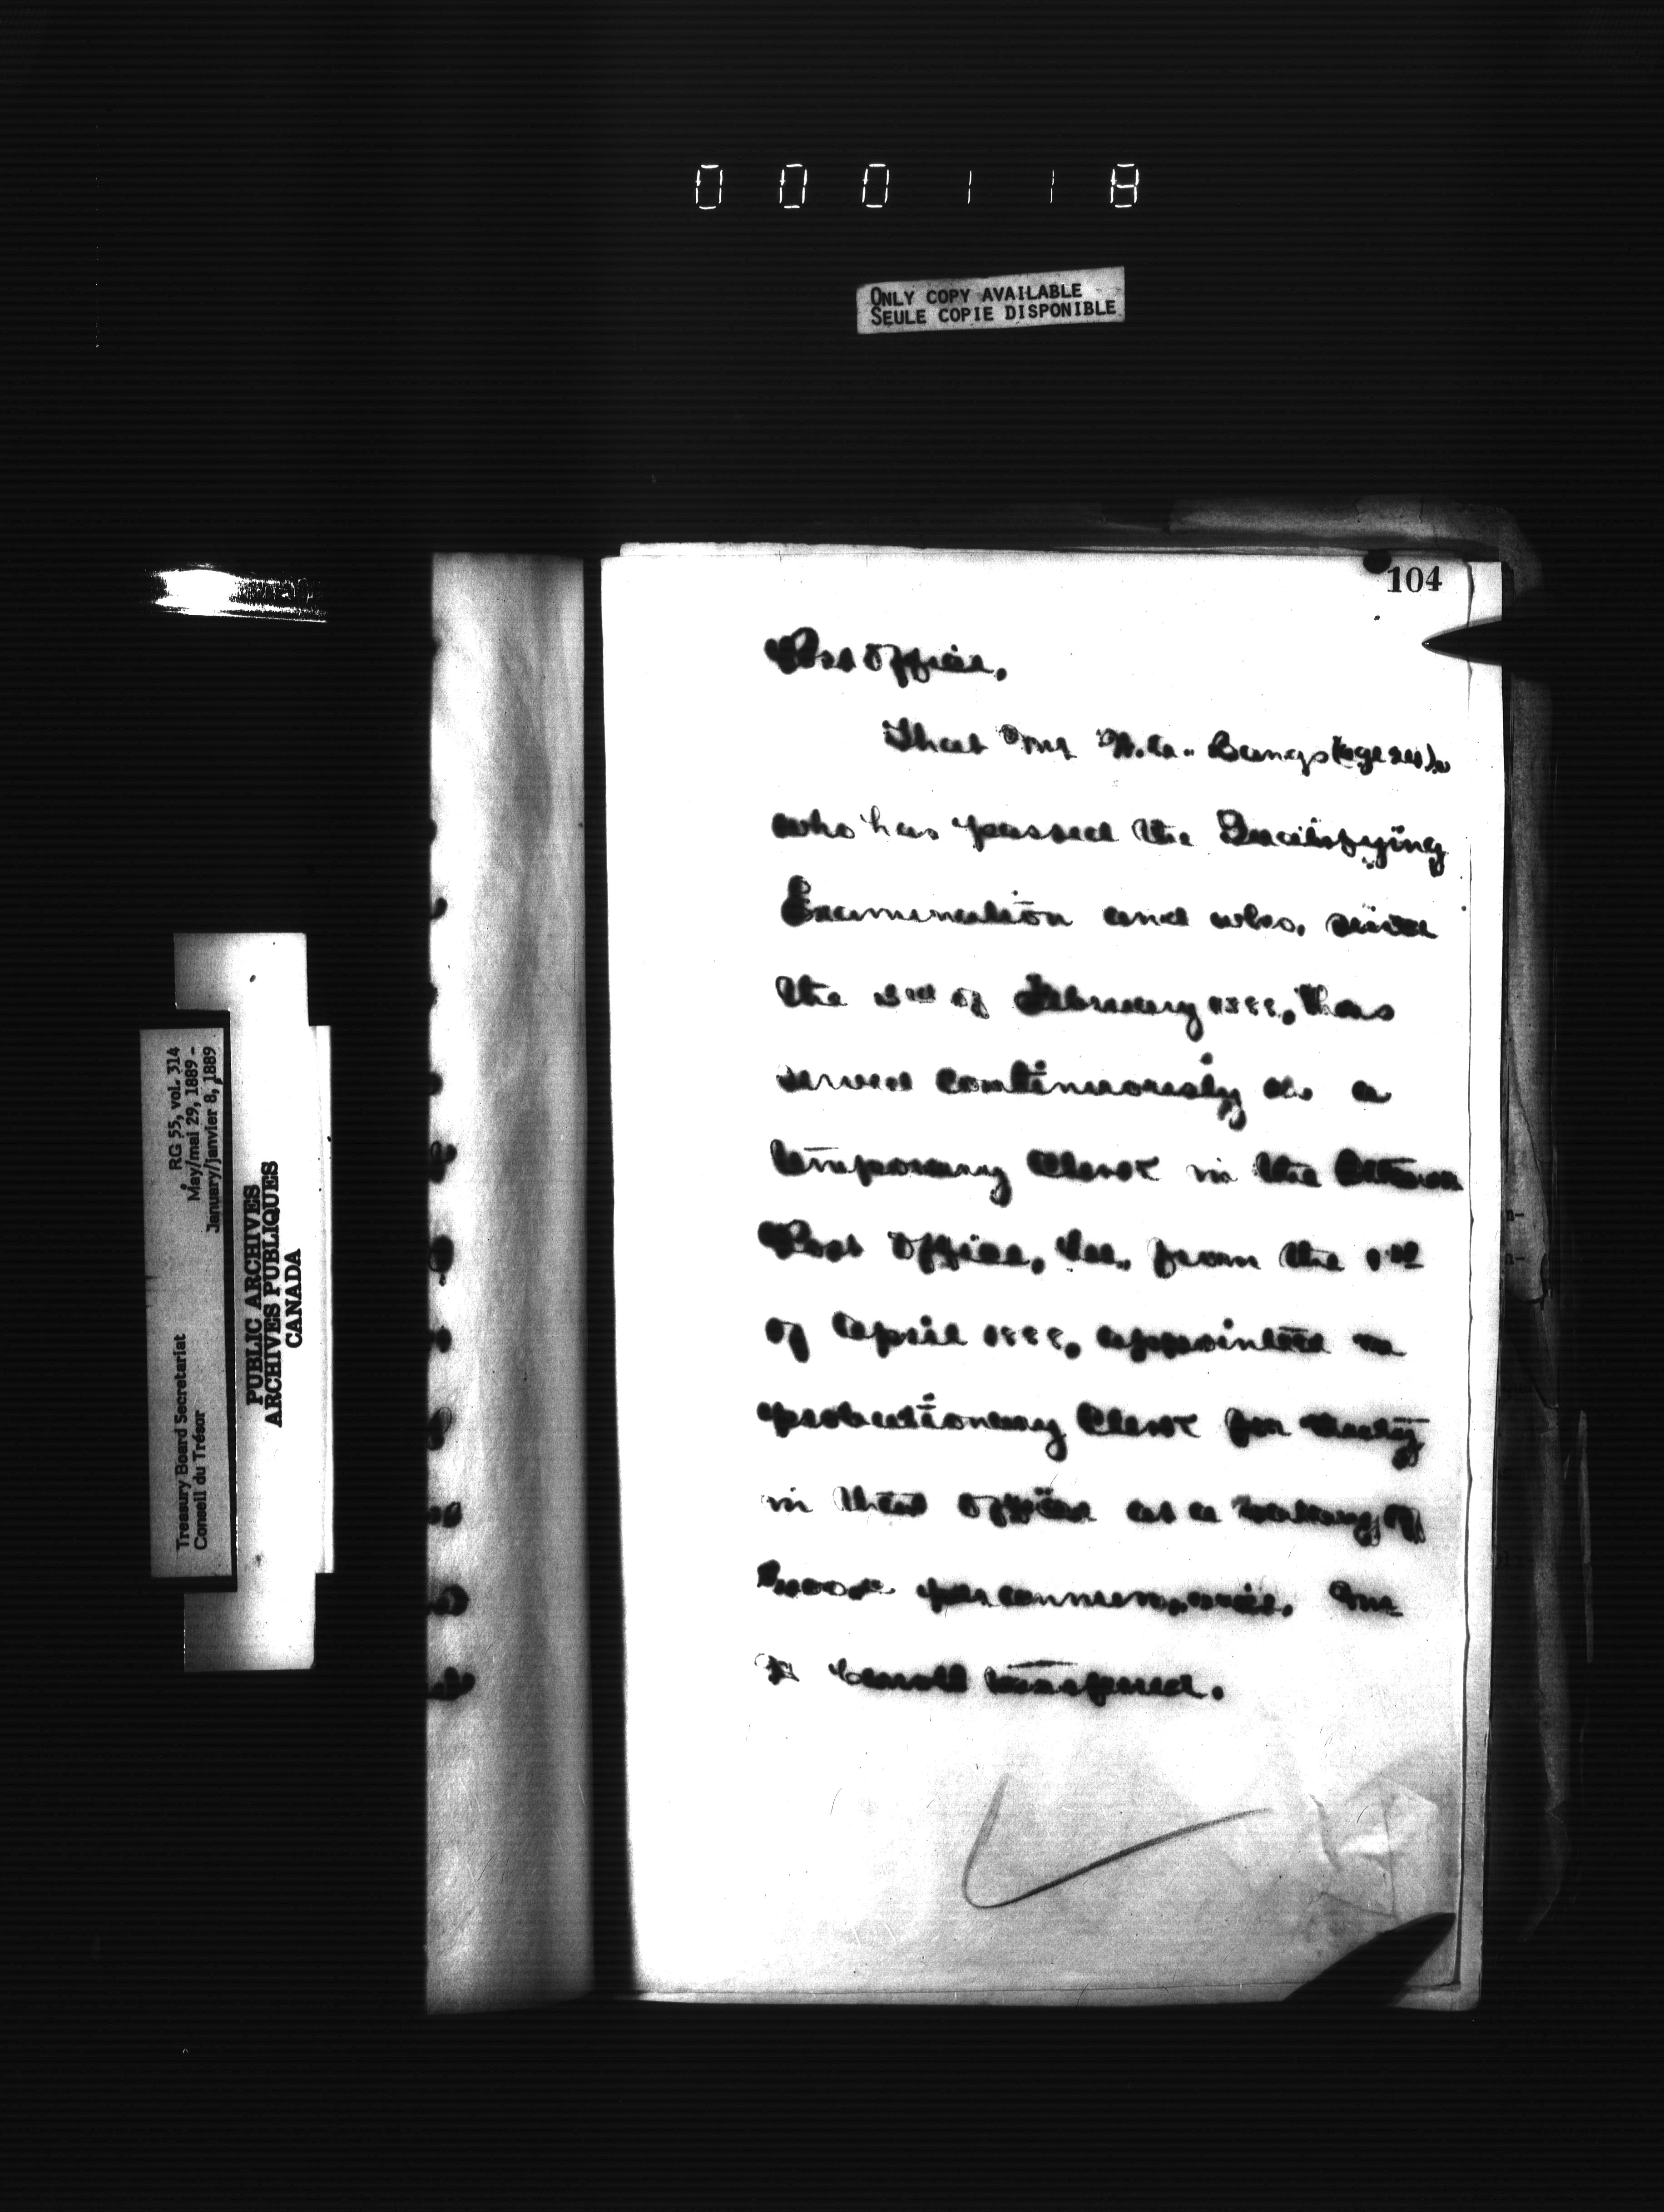 000118
ONLY COPY AVAILABLE
SEULE COPIE DISPONIBLE
104
Post Office,
That Mr Bangs (age 24),
who has passed the Qualifying
Examination and who, since
the of February 1888, has
served continuously as a
temporary Clerk in the Ottawa
Post Office, be, from the 1st
of April 1888, appointed a
probationary Clerk for duty
in that Office at a salary of
per annum, vice, Mr
transferred.
RG 55, vol. 314
May/mai 29, 1889 -
January/janvier 8, 1889
Treasury Board Secretariat
Conseil du Trésor
PUBLIC ARCHIVES
ARCHIVES PUBLIQUES
CANADA